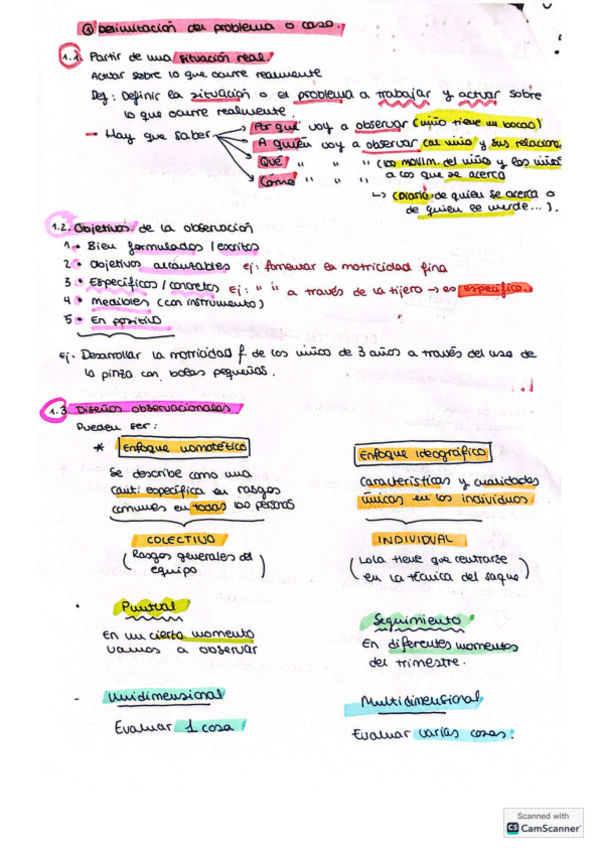 ① Delimitación del problema o caso.
1.1. Partir de una situación real.
Actuar sobre lo que ocurre realmente
Def: Definir la situación o el problema a trabajar y actuar sobre
lo que ocurre realmente.
- Hay que saber → Por qué voy a observar (niño tiene un bocao)
→ A quién voy a observar (al niño y sus relacione
→ Qué " " " (los movim. del niño y los niños
a los que se acerca
→ Cómo " " "
↳ (Diario de quien se acerca o
de quien se muerde...).
1.2. Objetivos de la observación
1 • Bien formulados / escritos
2 • Objetivos alcanzables ej: fomentar la motricidad fina
3 • Específicos / concretos Ej: " " a través de la tijera → es específico.
4 • Medibles (con instrumento)
5 • En positivo
ej. Desarrollar la motricidad f. de los niños de 3 años a través del uso de
la pinza con bolas pequeñas.
1.3 Diseños observacionales.
Pueden ser:
* Enfoque nomotético
Se describe como una
cant. específica en rasgos
comunes en todas las personas
COLECTIVO
(Rasgos generales del
equipo)
Enfoque ideográfico
Características y cualidades
únicas en los individuos
INDIVIDUAL
(Lola tiene que centrarse
en la técnica del saque)
• Puntual
En un cierto momento
vamos a observar
Seguimiento
En diferentes momentos
del trimestre.
- Unidimensional
Evaluar 1 cosa
Multidimensional
Evaluar varias cosas.
Scanned with
CS CamScanner